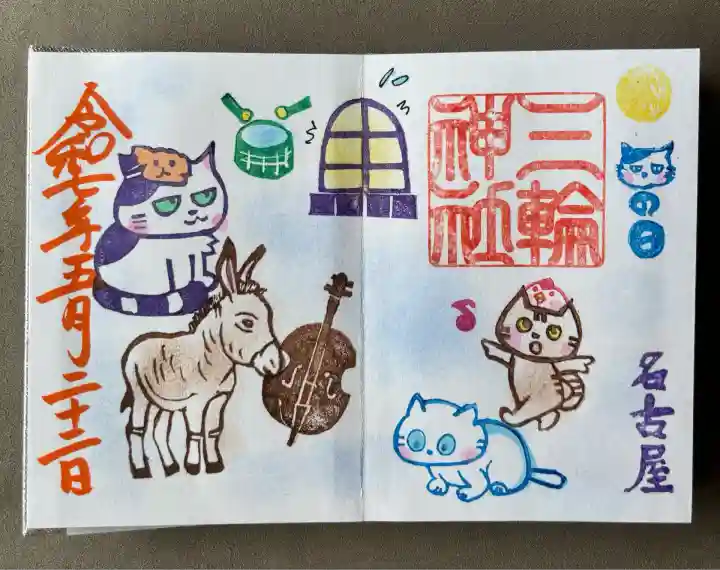 三輪
神社
の日
名古屋
令和七年五月二十二日